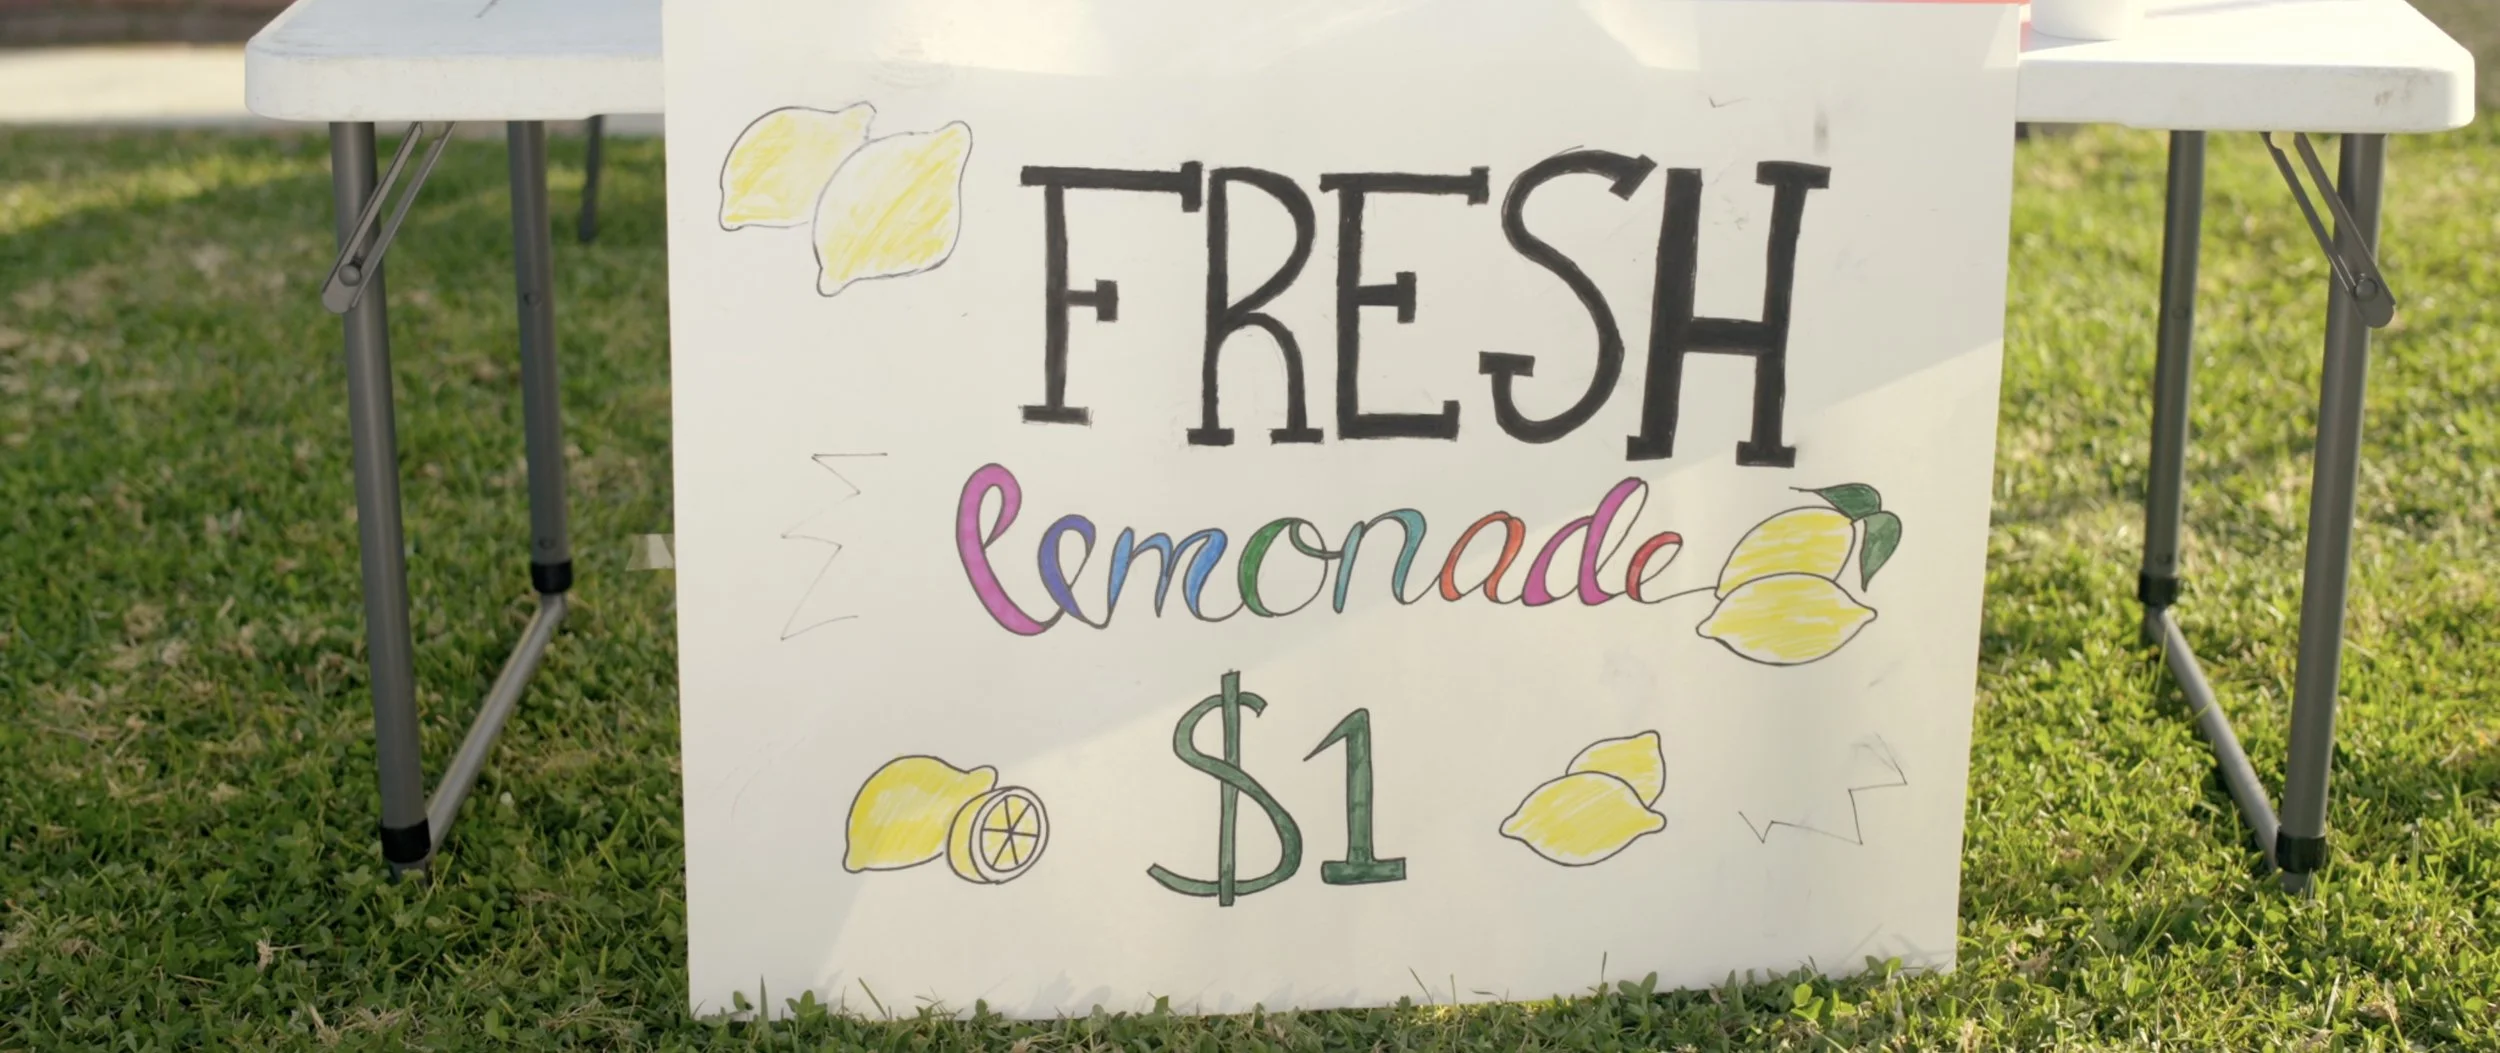 FRESH
lemonade
$1